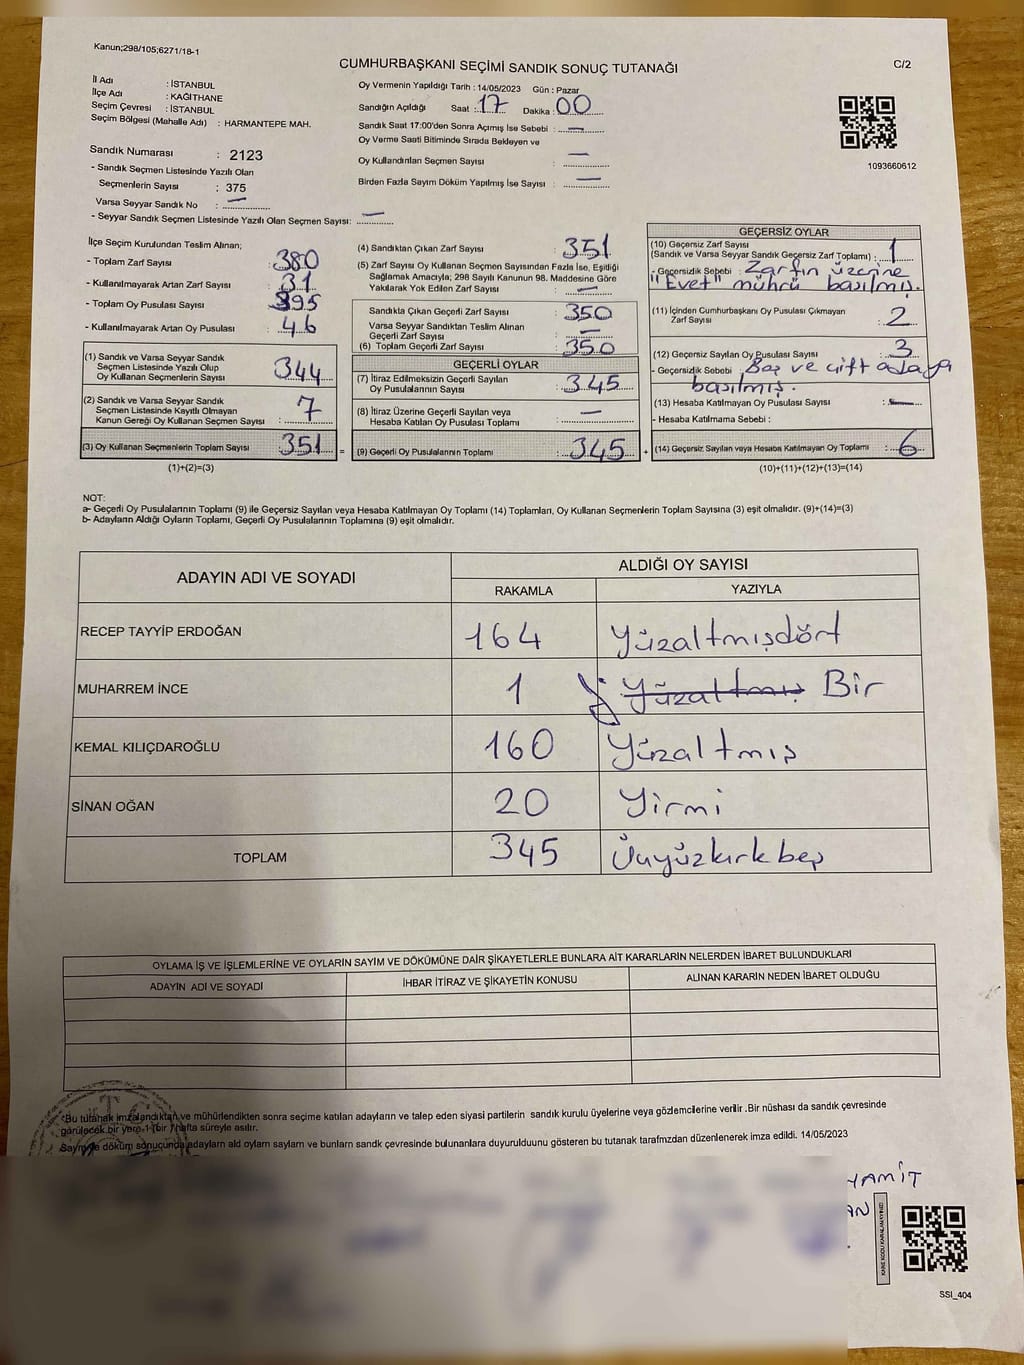 Kanun;298/105;6271/18-1
CUMHURBAŞKANI SEÇİMİ SANDIK SONUÇ TUTANAĞI
C/2
İl Adı : İSTANBUL
İlçe Adı : KAĞITHANE
Seçim Çevresi : İSTANBUL
Seçim Bölgesi (Mahalle Adı) : HARMANTEPE MAH.
Sandık Numarası : 2123
- Sandık Seçmen Listesinde Yazılı Olan
Seçmenlerin Sayısı : 375
Varsa Seyyar Sandık No : —
- Seyyar Sandık Seçmen Listesinde Yazılı Olan Seçmen Sayısı: —
Oy Vermenin Yapıldığı Tarih : 14/05/2023 Gün : Pazar
Sandığın Açıldığı Saat : 17 Dakika : 00
Sandık Saat 17:00'den Sonra Açımış İse Sebebi : —
Oy Verme Saati Bitiminde Sırada Bekleyen ve
Oy Kullandırılan Seçmen Sayısı : —
Birden Fazla Sayım Döküm Yapılmış İse Sayısı : —
1093660612
İlçe Seçim Kurulundan Teslim Alınan;
- Toplam Zarf Sayısı : 380
- Kullanılmayarak Artan Zarf Sayısı : 31
- Toplam Oy Pusulası Sayısı : 395
- Kullanılmayarak Artan Oy Pusulası : 46
(1) Sandık ve Varsa Seyyar Sandık
Seçmen Listesinde Yazılı Olup
Oy Kullanan Seçmenlerin Sayısı : 344
(2) Sandık ve Varsa Seyyar Sandık
Seçmen Listesinde Kayıtlı Olmayan
Kanun Gereği Oy Kullanan Seçmen Sayısı : 7
(3) Oy Kullanan Seçmenlerin Toplam Sayısı : 351
(1)+(2)=(3)
(4) Sandıktan Çıkan Zarf Sayısı : 351
(5) Zarf Sayısı Oy Kullanan Seçmen Sayısından Fazla İse, Eşitliği
Sağlamak Amacıyla; 298 Sayılı Kanunun 98. Maddesine Göre
Yakılarak Yok Edilen Zarf Sayısı : —
Sandıkla Çıkan Geçerli Zarf Sayısı : 350
Varsa Seyyar Sandıktan Teslim Alınan
Geçerli Zarf Sayısı : —
(6) Toplam Geçerli Zarf Sayısı : 350
GEÇERLİ OYLAR
(7) İtiraz Edilmeksizin Geçerli Sayılan
Oy Pusulalarının Sayısı : 345
(8) İtiraz Üzerine Geçerli Sayılan veya
Hesaba Katılan Oy Pusulası Toplamı : —
(9) Geçerli Oy Pusulalarının Toplamı : 345
GEÇERSİZ OYLAR
(10) Geçersiz Zarf Sayısı
(Sandık ve Varsa Seyyar Sandık Geçersiz Zarf Toplamı) : 1
- Geçersizlik Sebebi : Zarfın üzerine
"Evet" mührü basılmış.
(11) İçinden Cumhurbaşkanı Oy Pusulası Çıkmayan
Zarf Sayısı : 2
(12) Geçersiz Sayılan Oy Pusulası Sayısı : 3
- Geçersizlik Sebebi : Boş ve çift adaya
basılmış.
(13) Hesaba Katılmayan Oy Pusulası Sayısı : —
- Hesaba Katılmama Sebebi :
(14) Geçersiz Sayılan veya Hesaba Katılmayan Oy Toplamı : 6
(10)+(11)+(12)+(13)=(14)
NOT:
a- Geçerli Oy Pusulalarının Toplamı (9) ile Geçersiz Sayılan veya Hesaba Katılmayan Oy Toplamı (14) Toplamları, Oy Kullanan Seçmenlerin Toplam Sayısına (3) eşit olmalıdır. (9)+(14)=(3)
b- Adayların Aldığı Oyların Toplamı, Geçerli Oy Pusulalarının Toplamına (9) eşit olmalıdır.
ADAYIN ADI VE SOYADI ALDIĞI OY SAYISI
RAKAMLA YAZIYLA
RECEP TAYYİP ERDOĞAN 164 Yüzaltmışdört
MUHARREM İNCE 1 Yüzaltmış Bir
KEMAL KILIÇDAROĞLU 160 Yüzaltmış
SİNAN OĞAN 20 Yirmi
TOPLAM 345 Üçyüzkırkbeş
OYLAMA İŞ VE İŞLEMLERİNE VE OYLARIN SAYIM VE DÖKÜMÜNE DAİR ŞİKAYETLERLE BUNLARA AİT KARARLARIN NELERDEN İBARET BULUNDUKLARI
ADAYIN ADI VE SOYADI İHBAR İTİRAZ VE ŞİKAYETİN KONUSU ALINAN KARARIN NEDEN İBARET OLDUĞU
*Bu tutanak imzalandıktan ve mühürlendikten sonra seçime katılan adayların ve talep eden siyasi partilerin sandık kurulu üyelerine veya gözlemcilerine verilir. Bir nüshası da sandık çevresinde
görülecek bir yere 1 (bir) hafta süreyle asılır.
Sayım ve döküm sonucunda adayların ald oylam sayları ve bunların sandk çevresinde bulunanlara duyurulduunu gösteren bu tutanak tarafmzdan düzenlenerek imza edildi. 14/05/2023
HAMİT
AN
SSI_404